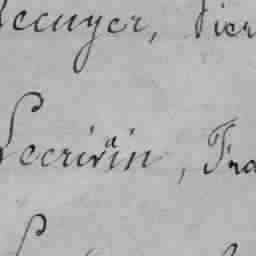 Lecuyer, Pier
Lecrivain, Fra